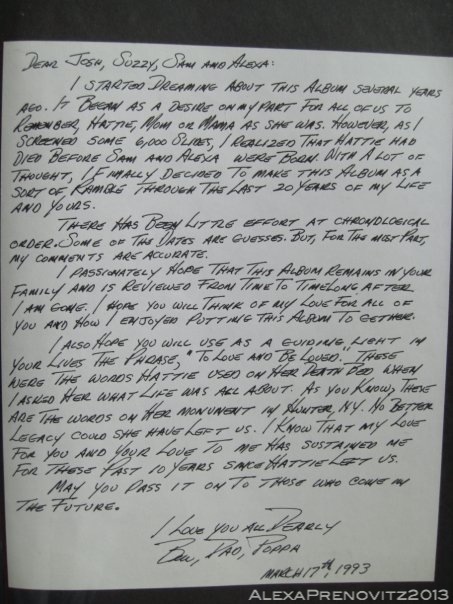 Dear Josh, Suzzy, Sam and Alexa:
I started dreaming about this album several years
ago. It began as a desire on my part for all of us to
remember, Hattie, Mom or Mama as she was. However, as I
screened some 6,000 slides, I realized that Hattie had
died before Sam and Alexa were born. With a lot of
thought, I finally decided to make this album as a
sort of ramble through the last 20 years of my life
and yours.
There has been little effort at chronological
order. Some of the dates are guesses. But, for the most part,
my comments are accurate.
I passionately hope that this album remains in your
family and is reviewed from time to time long after
I am gone. I hope you will think of my love for all of
you and how I enjoyed putting this album to gether.
I also hope you will use as a guiding light in
your lives the phrase, "To love and be loved. These
were the words Hattie used on her death bed when
I asked her what life was all about. As you know, these
are the words on her monument in Hunter, NY. No better
legacy could she have left us. I know that my love
for you and your love to me has sustained me
for these past 10 years since Hattie left us.
May you pass it on to those who come in
the future.
I love you all dearly
Dad, Poppa
March 17th, 1993
AlexaPrenovitz2013